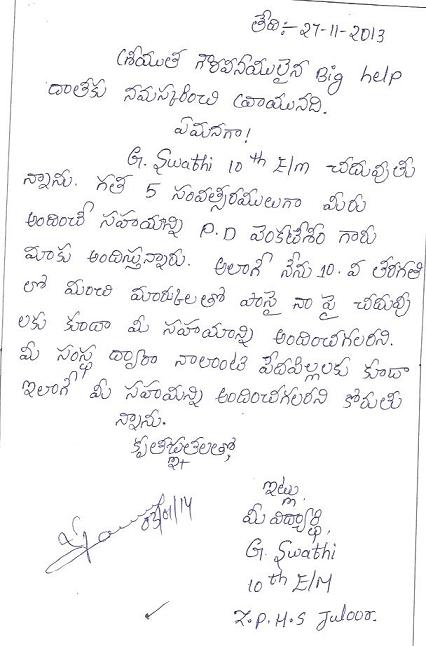 తేది:- 27-11-2013
శ్రీయుత గౌరవనీయులైన Big help
దాతకు నమస్కరించి వ్రాయునది.
ఏమనగా!
G. Swathi 10 th E/m చదువుతు
న్నాను. గత 5 సంవత్సరములుగా మీరు
అందించే సహాయాన్ని P.D వెంకటేశం గారు
మాకు అందిస్తున్నారు. అలాగే నేను 10. వ తరగతి
లో మంచి మార్కులతో పాసై నా పై చదువు
లకు కూడా మీ సహాయాన్ని అందించగలరని.
మీ సంస్థ ద్వారా నాలాంటి పేదపిల్లలకు కూడా
ఇలాగే మీ సహాయాన్ని అందించగలరని కోరుతు
న్నాను.
కృతజ్ఞతలతో,
ఇట్లు,
మీ విద్యార్థి,
G. Swathi
10 th E/M
Z.P.H.S Juloor.
03/01/14